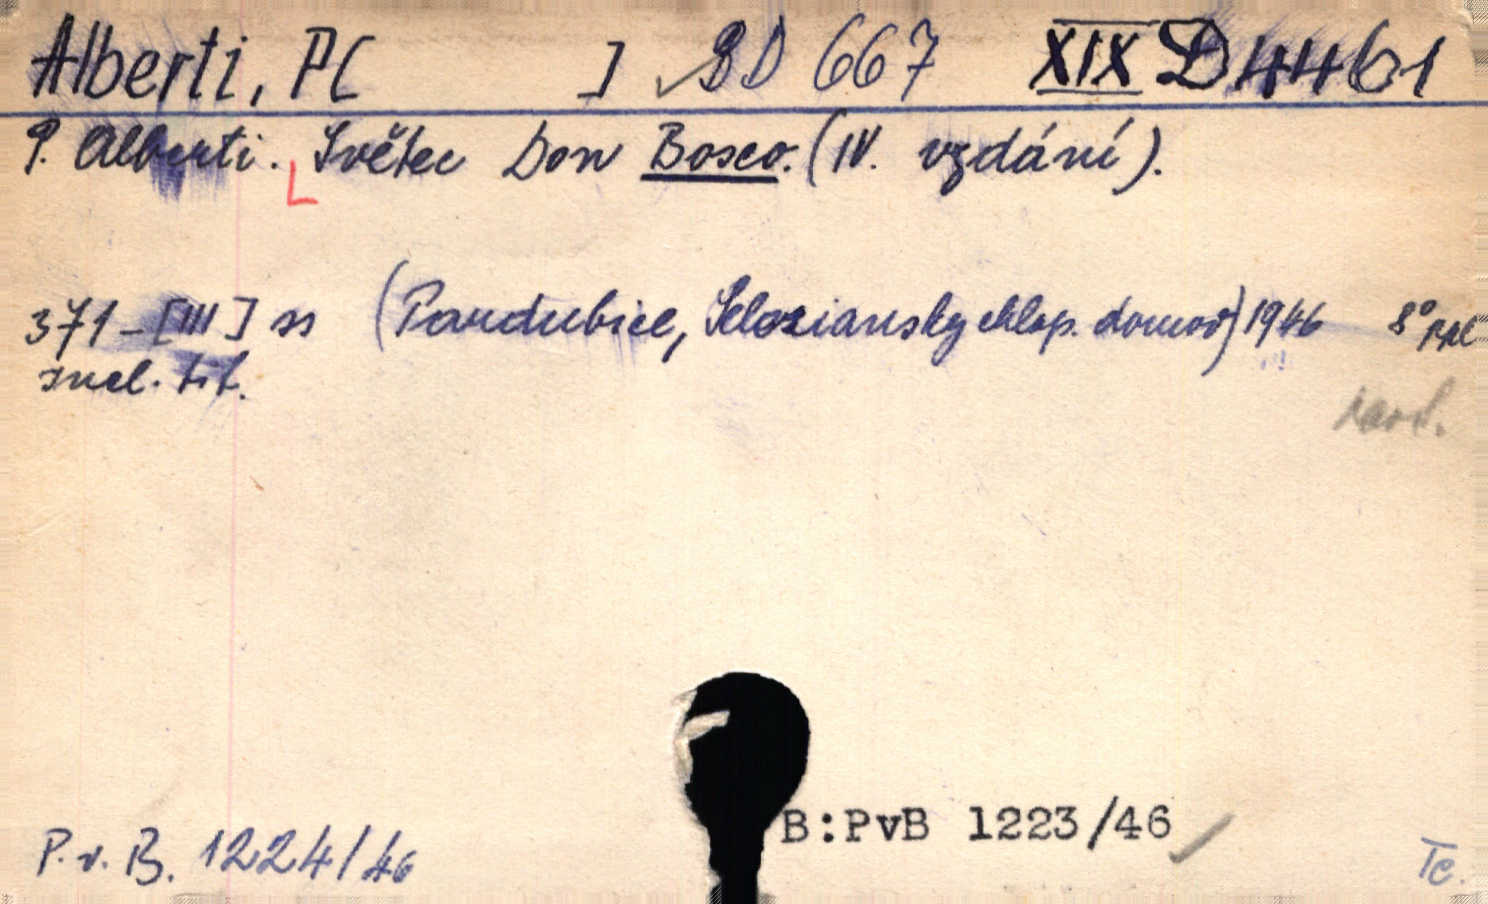 Alberti, P[ ] BD 667 XIX D 4461
P. Alberti. Světec Don Bosco. (IV. vzdání).
371-[III] ss (Pardubice, Seleziansky chlap. domov) 1946 8°
incl. tit.
B:PvB 1223/46
P.v.B. 1224/46
Te.